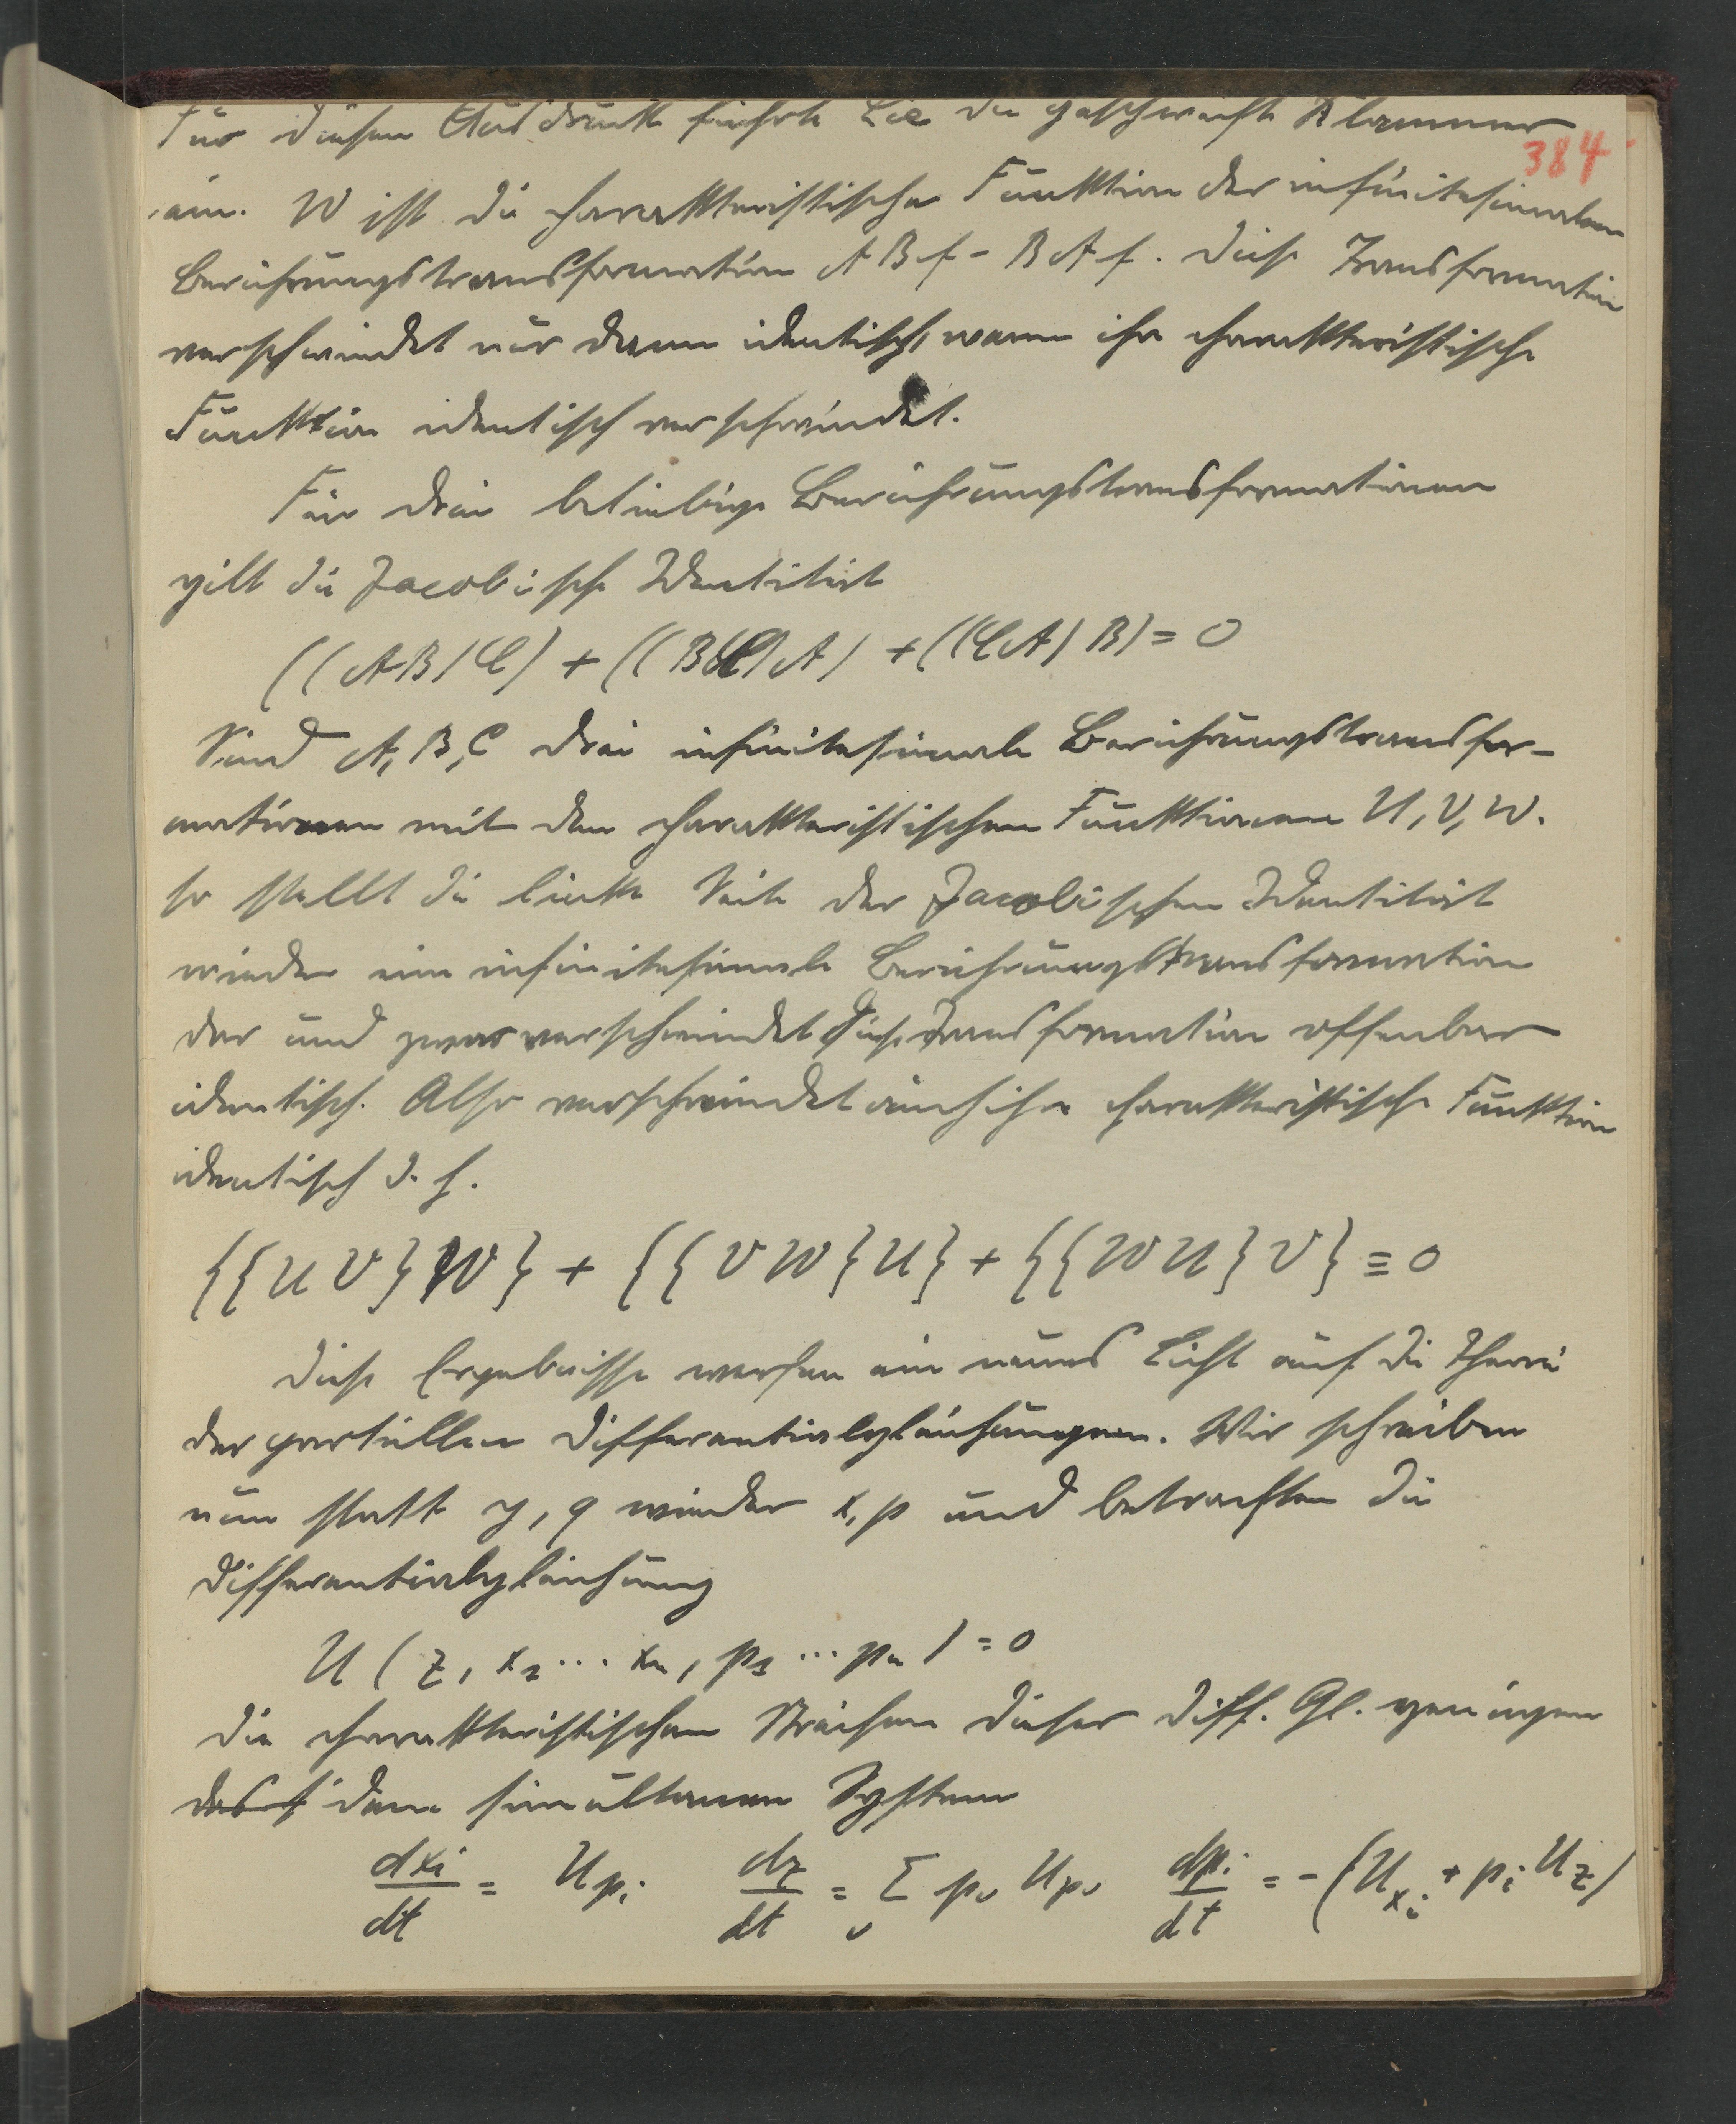 Für diesen Ausdruck führte Lie die geschweifte Klammer
384
ein. W ist die charakteristische Funktion der infinitesimalen
Berührungstransformation A B f - B A f. Diese Transformation
verschwindet nur dann identisch, wenn ihre charakteristische
Funktion identisch verschwindet.
Für drei beliebige Berührungstransformationen
gilt die Jacobische Identität
((AB)C) + ((BC)A) + ((CA)B) = 0
Sind A, B, C drei infinitesimale Berührungstransfor-
mationen mit den charakteristischen Funktionen U, V, W.
so stellt die linke Seite der Jacobischen Identität
wieder eine infinitesimale Berührungstransformation
dar und zwar verschwindet diese Transformation offenbar
identisch. Also verschwindet auch ihre charakteristische Funktion
identisch d. h.
{{U V} W} + {{V W} U} + {{W U} V} ≡ 0
Diese Ergebnisse werfen ein neues Licht auf die Theorie
der partiellen Differentialgleichungen. Wir schreiben
nun statt y, q wieder x, p und betrachten die
Differentialgleichung
U (z, x₁ ... xₙ, p₁ ... pₙ) = 0
Die charakteristischen Streifen dieser Diff. Gl. genügen
das s dem simultanen System
dxᵢ/dt = U_{pᵢ} dz/dt = Σ_ν p_ν U_{p_ν} dpᵢ/dt = - (U_{xᵢ} + pᵢ U_z)